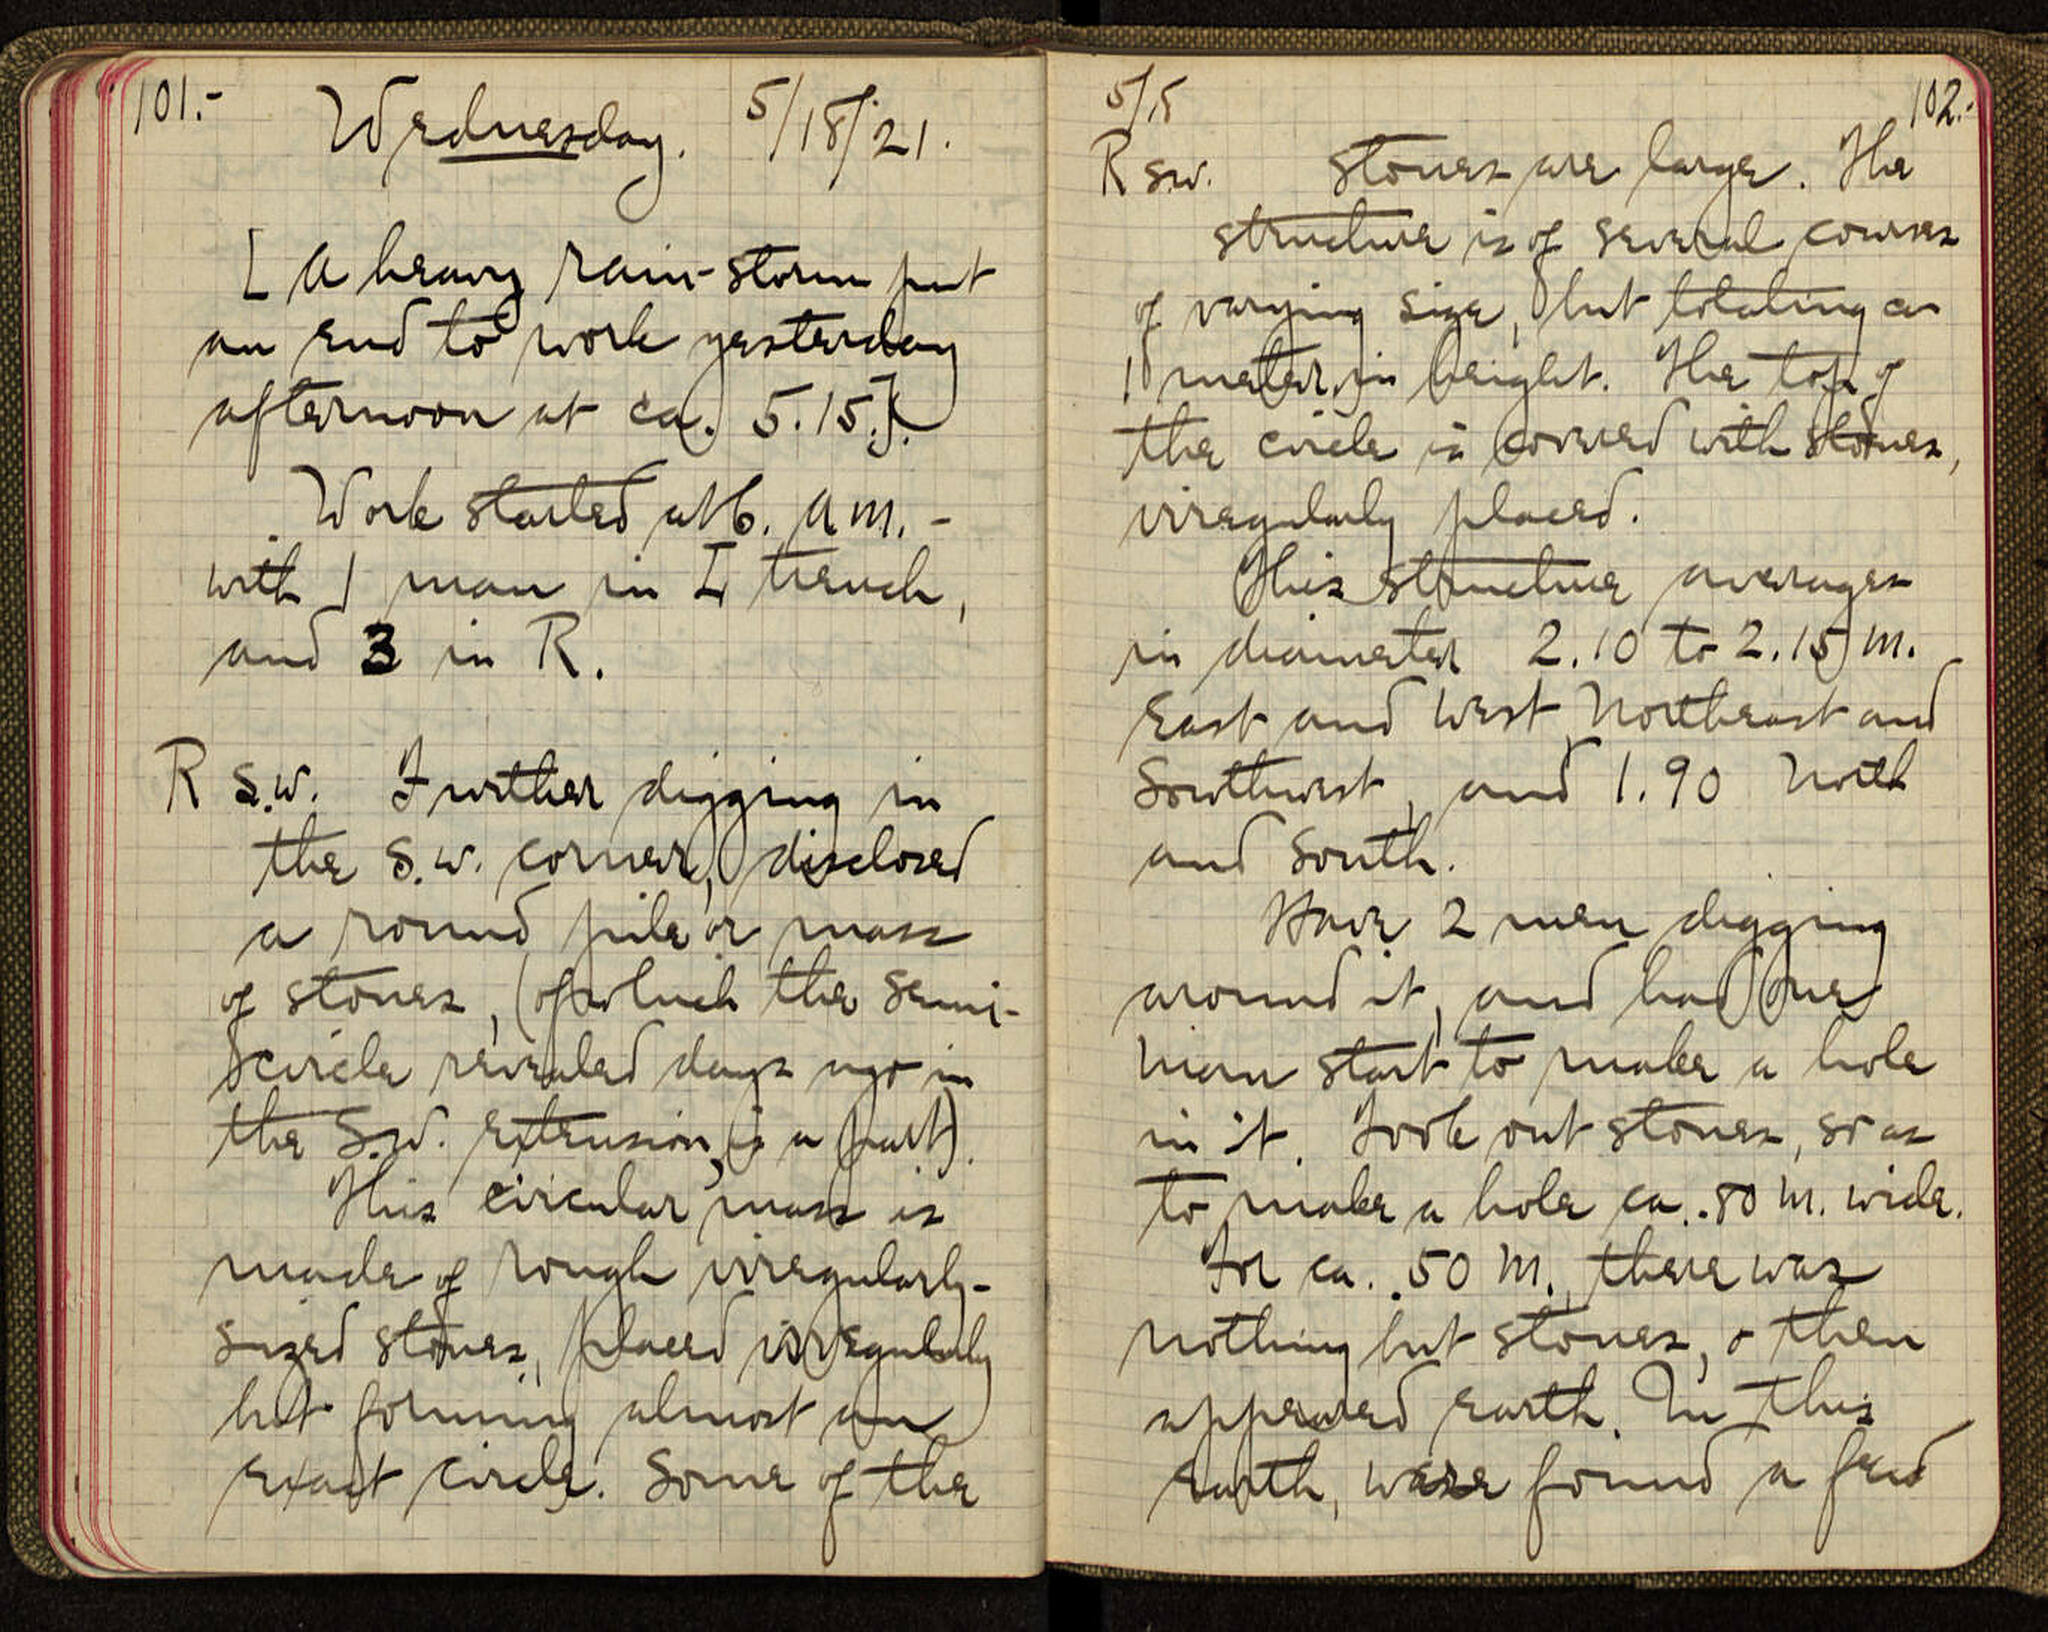 101.-
Wednesday. 5/18/21.
[ A heavy rain-storm put
an end to work yesterday
afternoon at ca. 5.15.].
Work started at 6. A.M. -
with 1 man in L trench,
and 3 in R.
R S.W. Further digging in
the S.W. corner, disclosed
a round pile or mass
of stones, (of which the semi-
circle revealed days ago in
the S.W. extension, is a part).
This circular mass is
made of rough irregularly-
sized stones, placed irregularly
but forming almost an
exact circle. Some of the
5/18
102.-
R SW. stones are large. The
structure is of several courses
of varying size, but totaling ca
1 meter in height. The top of
the circle is covered with stones,
irregularly placed.
This structure averages
in diameter 2.10 to 2.15 m.
East and West, Northeast and
Southwest, and 1.90 North
and South.
Have 2 men digging
around it, and had one
man start to make a hole
in it. Took out stones, so as
to make a hole ca. .80 m. wide.
For ca. .50 m. there was
nothing but stones, & then
appeared earth. In this
earth, were found a few